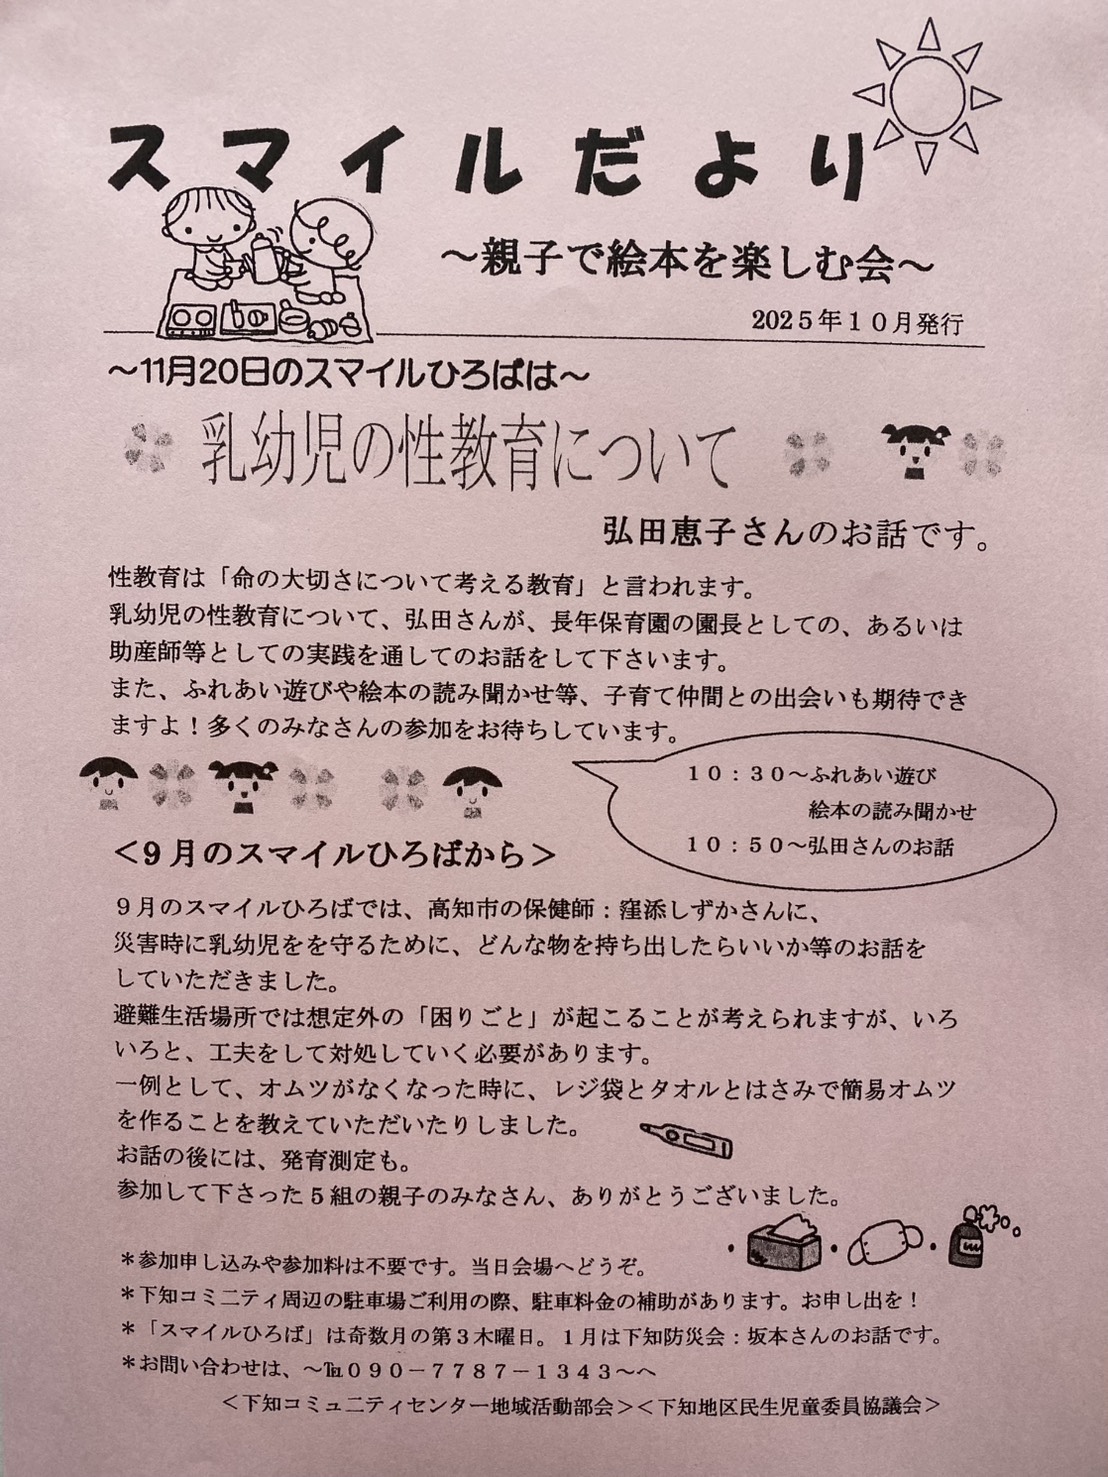 スマイルだより
～親子で絵本を楽しむ会～
2025年10月発行
～11月20日のスマイルひろばは～
乳幼児の性教育について
弘田恵子さんのお話です。
性教育は「命の大切さについて考える教育」と言われます。
乳幼児の性教育について、弘田さんが、長年保育園の園長としての、あるいは
助産師等としての実践を通してのお話をして下さいます。
また、ふれあい遊びや絵本の読み聞かせ等、子育て仲間との出会いも期待でき
ますよ！多くのみなさんの参加をお待ちしています。
１０：３０～ふれあい遊び
絵本の読み聞かせ
１０：５０～弘田さんのお話
＜９月のスマイルひろばから＞
９月のスマイルひろばでは、高知市の保健師：窪添しずかさんに、
災害時に乳幼児をを守るために、どんな物を持ち出したらいいか等のお話を
していただきました。
避難生活場所では想定外の「困りごと」が起こることが考えられますが、いろ
いろと、工夫をして対処していく必要があります。
一例として、オムツがなくなった時に、レジ袋とタオルとはさみで簡易オムツ
を作ることを教えていただいたりしました。
お話の後には、発育測定も。
参加して下さった５組の親子のみなさん、ありがとうございました。
＊参加申し込みや参加料は不要です。当日会場へどうぞ。
＊下知コミニティ周辺の駐車場ご利用の際、駐車料金の補助があります。お申し出を！
＊「スマイルひろば」は奇数月の第３木曜日。１月は下知防災会：坂本さんのお話です。
＊お問い合わせは、～℡０９０－７７８７－１３４３～へ
＜下知コミュニティセンター地域活動部会＞＜下知地区民生児童委員協議会＞